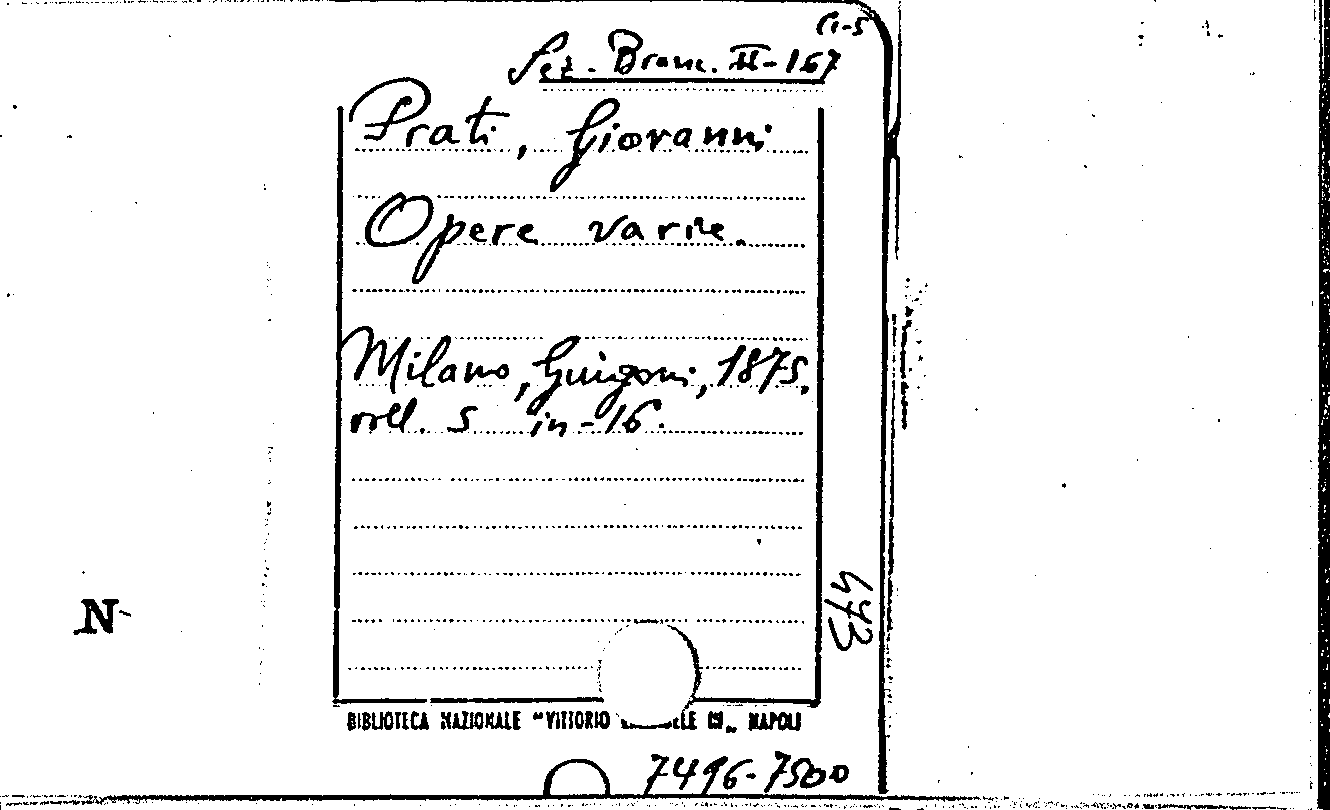 (1-5
Sez. Branc. II-167
Prati, Giovanni
Opere varie.
Milano, Guigoni, 1875.
voll. 5 in-16.
473
N
BIBLIOTECA NAZIONALE "VITTORIO III„ NAPOLI
7496-7500